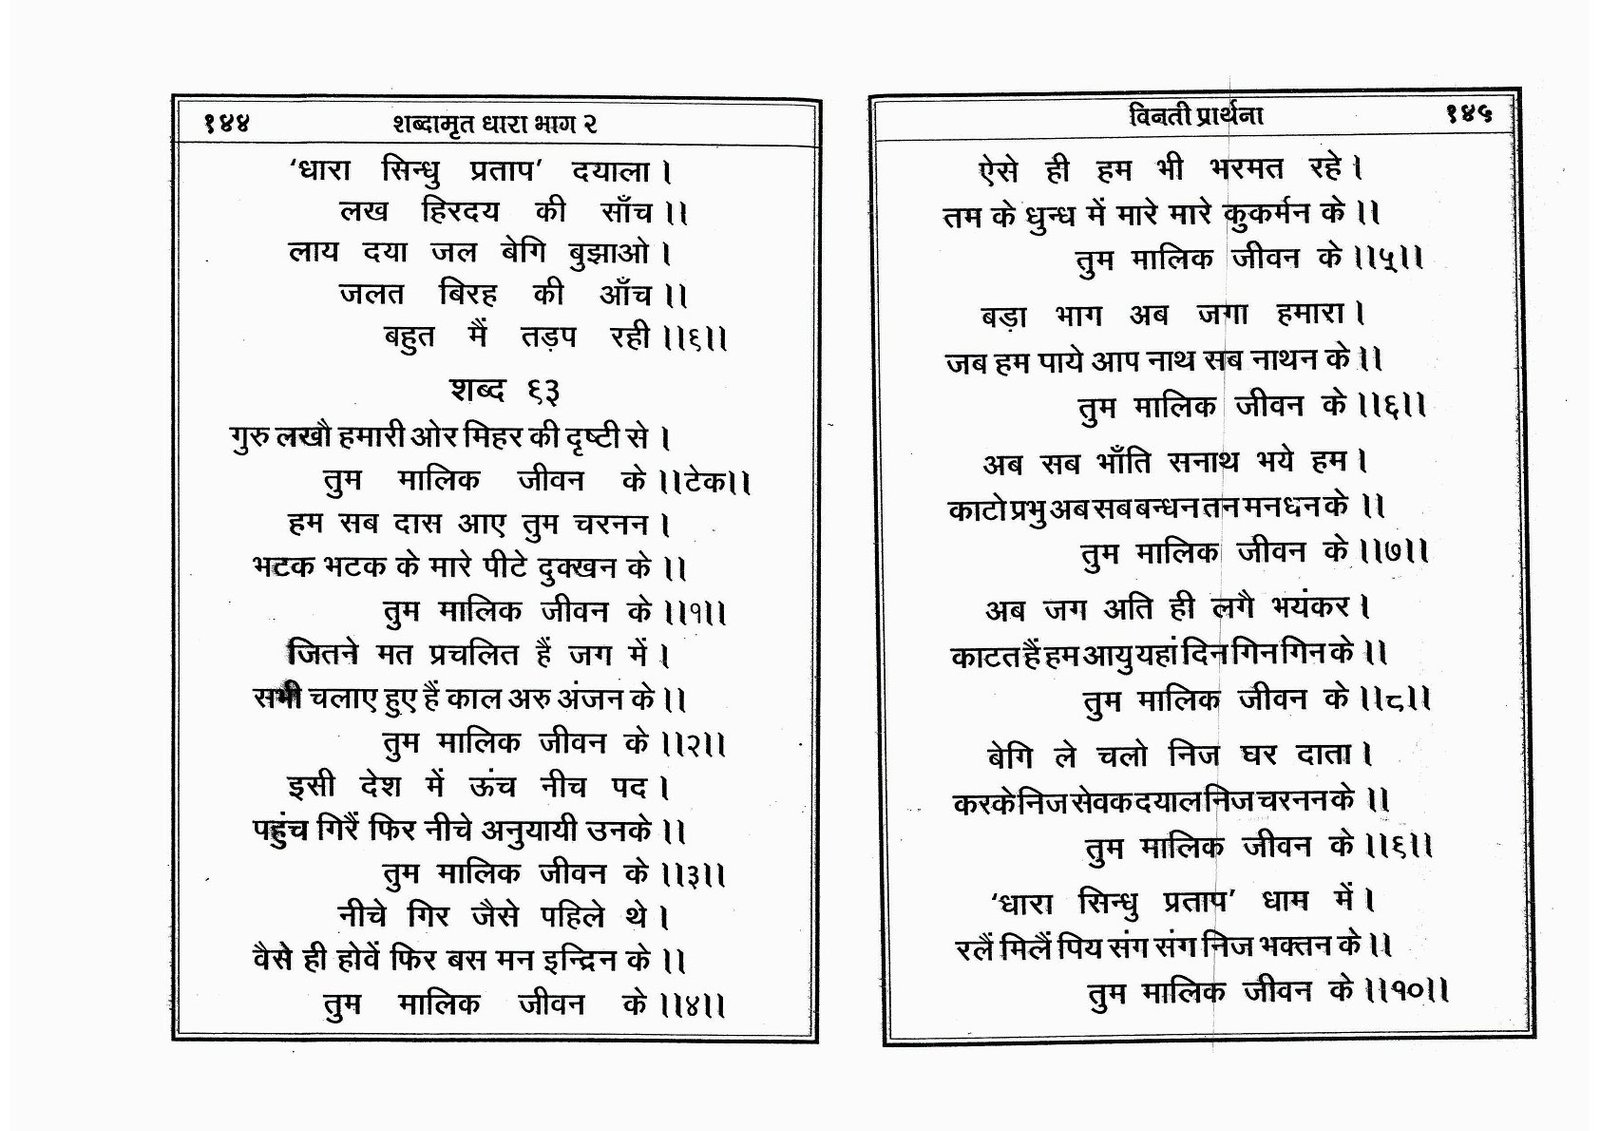 १४४ शब्दामृत धारा भाग २
‘धारा सिन्धु प्रताप’ दयाला ।
लख हिरदय की साँच ।।
लाय दया जल बेगि बुझाओ ।
जलत बिरह की आँच ।।
बहुत मैं तड़प रही ।।६।।
शब्द ६३
गुरु लखौ हमारी ओर मिहर की दृष्टी से ।
तुम मालिक जीवन के ।।टेक।।
हम सब दास आए तुम चरनन ।
भटक भटक के मारे पीटे दुक्खन के ।।
तुम मालिक जीवन के ।।१।।
जितने मत प्रचलित हैं जग में ।
सभी चलाए हुए हैं काल अरु अंजन के ।।
तुम मालिक जीवन के ।।२।।
इसी देश में ऊंच नीच पद ।
पहुंच गिरैं फिर नीचे अनुयायी उनके ।।
तुम मालिक जीवन के ।।३।।
नीचे गिर जैसे पहिले थे ।
वैसे ही होवें फिर बस मन इन्द्रिन के ।।
तुम मालिक जीवन के ।।४।।
विनती प्रार्थना १४५
ऐसे ही हम भी भरमत रहे ।
तम के धुन्ध में मारे मारे कुकर्मन के ।।
तुम मालिक जीवन के ।।५।।
बड़ा भाग अब जगा हमारा ।
जब हम पाये आप नाथ सब नाथन के ।।
तुम मालिक जीवन के ।।६।।
अब सब भाँति सनाथ भये हम ।
काटो प्रभु अब सब बन्धन तन मन धन के ।।
तुम मालिक जीवन के ।।७।।
अब जग अति ही लगै भयंकर ।
काटत हैं हम आयु यहां दिन गिन गिन के ।।
तुम मालिक जीवन के ।।८।।
बेगि ले चलो निज घर दाता ।
करके निज सेवक दयाल निज चरनन के ।।
तुम मालिक जीवन के ।।९।।
‘धारा सिन्धु प्रताप’ धाम में ।
रलैं मिलैं पिय संग संग निज भक्तन के ।।
तुम मालिक जीवन के ।।१०।।